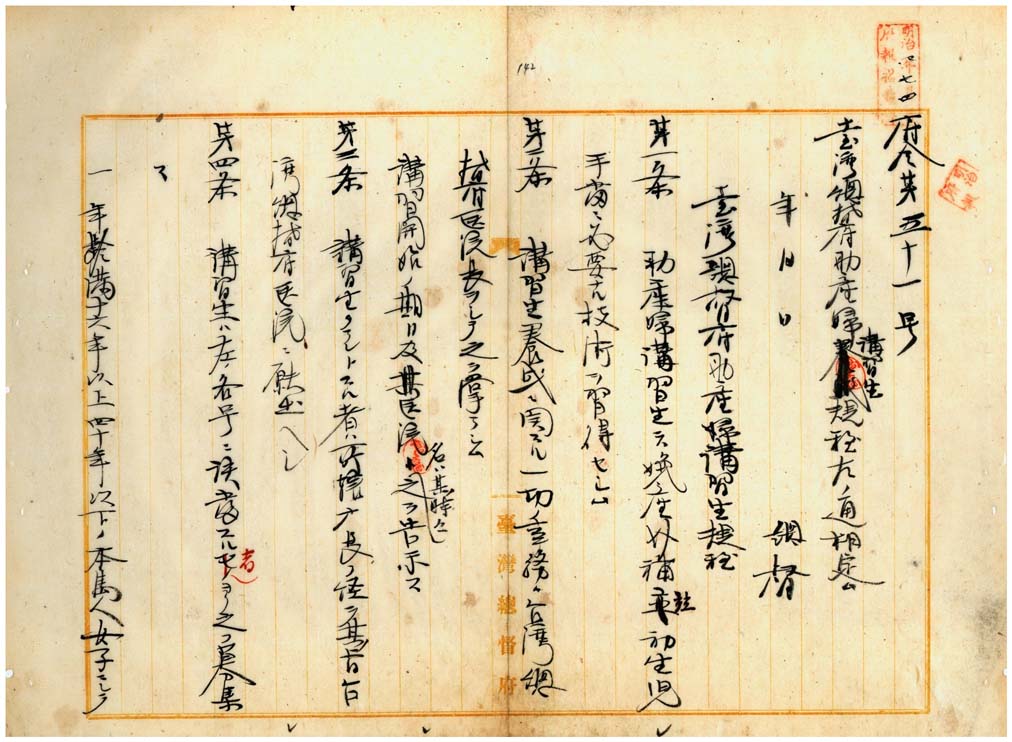 142
府令第五十一号
臺湾總督府助産婦講習生規程左ノ通相定ム
年 月 日
總督
臺湾總督府助産婦講習生規程
第一条 助産婦講習生ハ娩産妊褥並初生児
手当ニ必要ナル技術ヲ習得セシム
第二条 講習生養成ニ関スル一切ノ業務ハ台湾總
督府医院長ヲシテ之ヲ掌ラシム
講習開始ノ期日及其医院名ハ其時々之ヲ告示ス
第三条 講習生タラントスル者ハ所轄庁長ヲ経テ其旨台
湾總督府医院ニ願出ヘシ
第四条 講習生ハ左ノ各号ニ該当スル者ヨリ之ヲ募集
ス
一 年齢満十六年以上四十年以下ノ本島人女子ニシテ
臺灣總督府